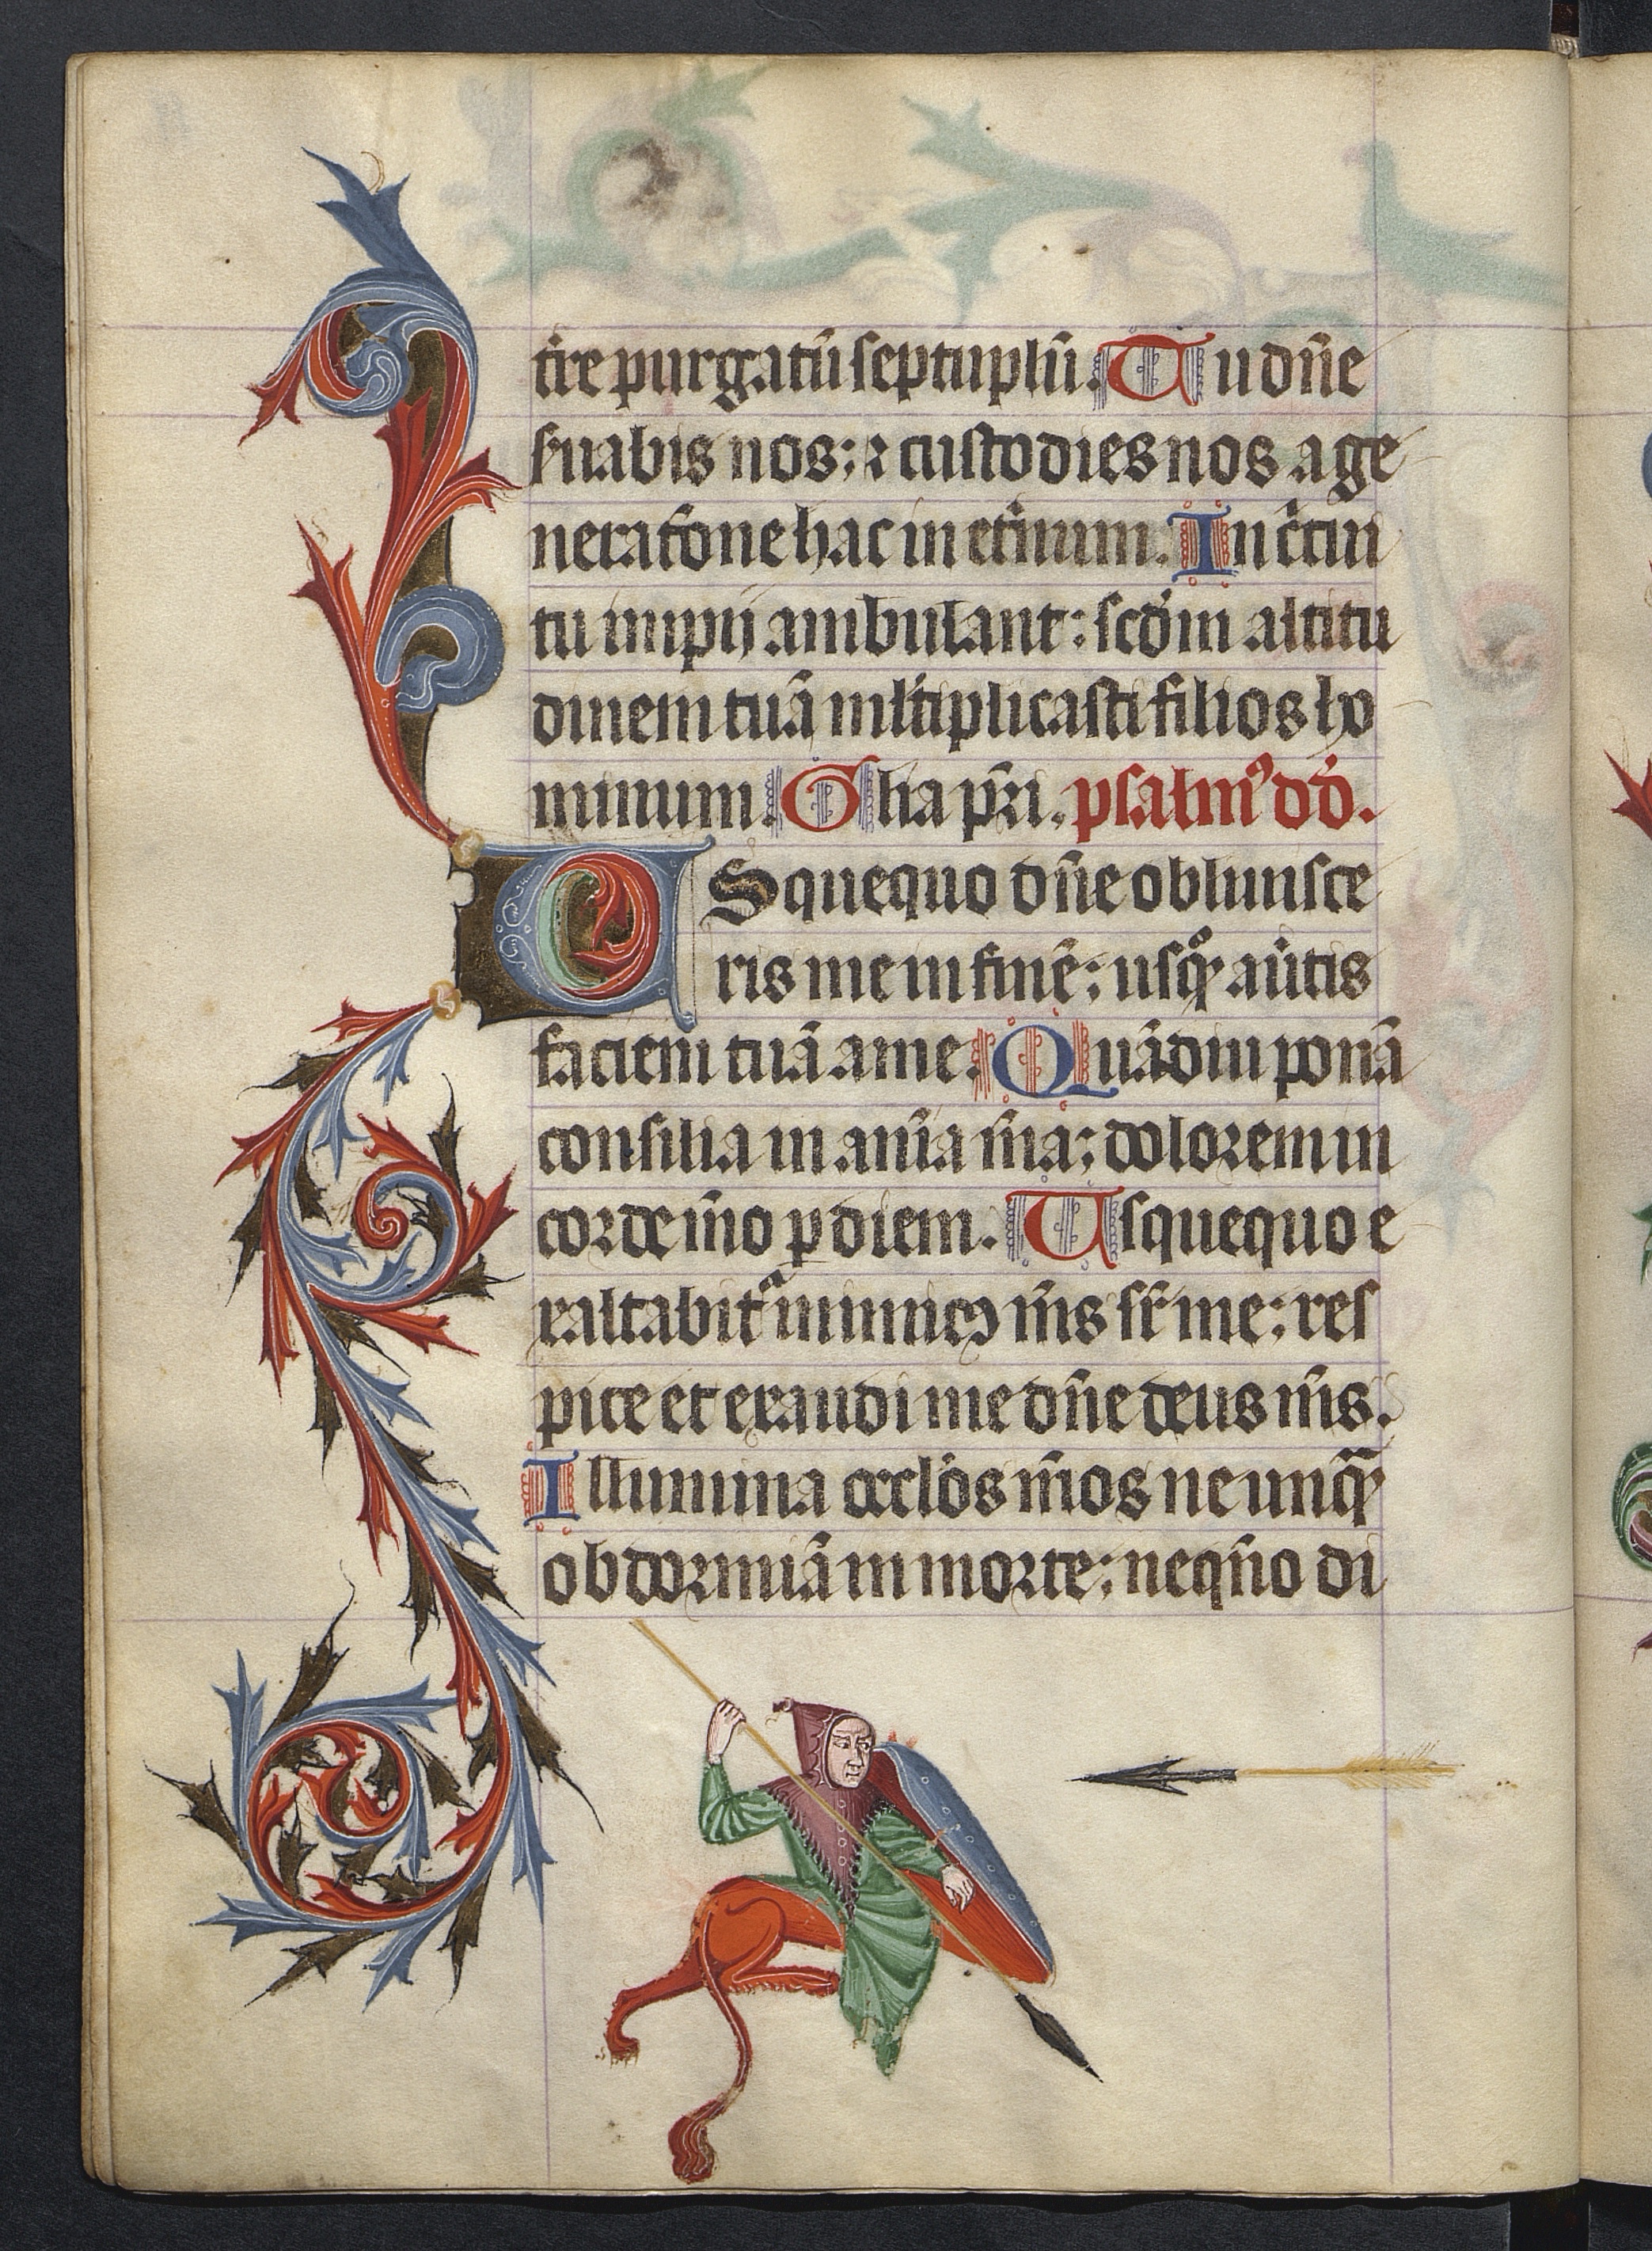 tr̄e purgatū septuplū. Tu dn̄e
ẜuabis nos: ⁊ custodies nos a ge
nerat̄one hac in et̄num. In c̄cui
tu impij ambulant: scd̄m altitu
dinem tuā ml̄tiplicasti filios ho
minum. Gl̄ia pr̄i. psalm᷒ dd̄.
USquequo dn̄e obliuisce
ris me in finē: usq̄ꝫ aūtis
faciem tuā a me. Quādiu ponā
consilia in anīa m̄a: dolorem in
corde m̄o ꝑ diem. Usquequo e
xaltabit᷑ inimicꝯ m̄s sr̄ me: res
pice et exaudi me dn̄e deus m̄s.
Illumina oc̄los m̄os ne unq̄ꝫ
obdormiā in morte: neqn̄o di